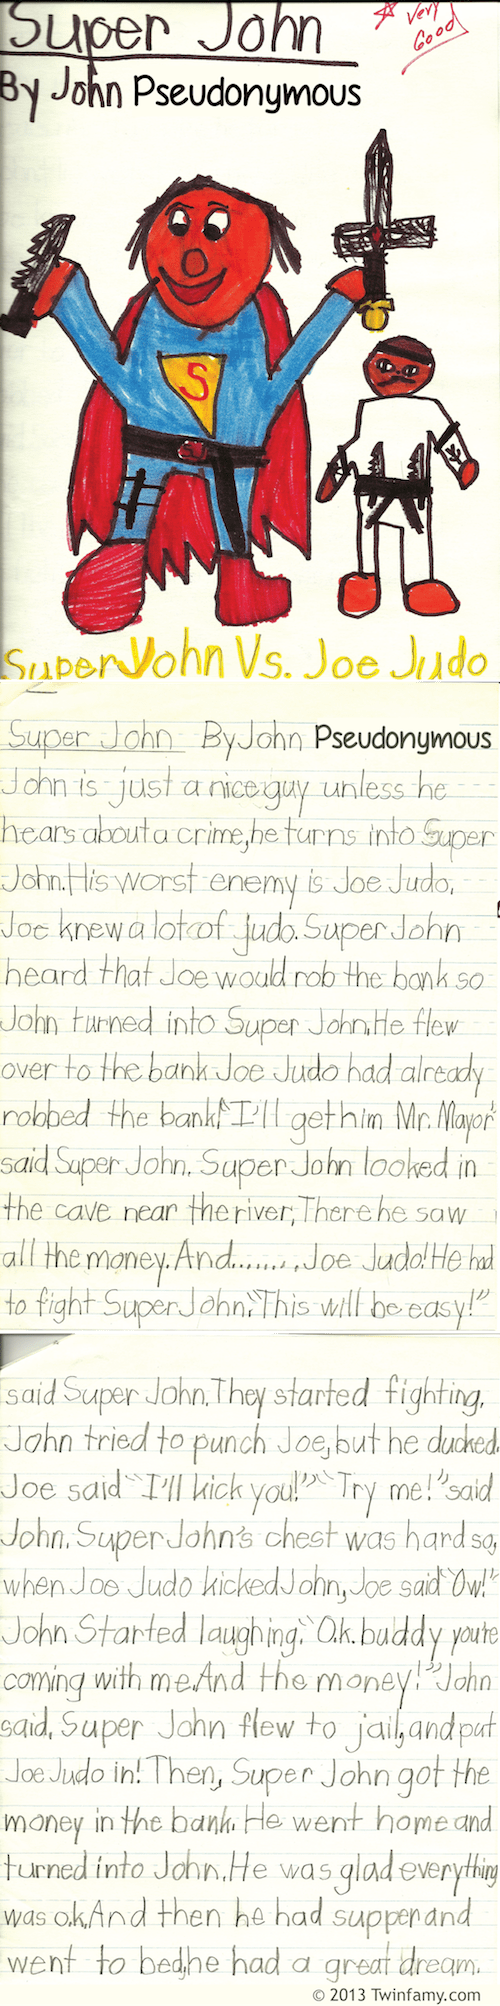 Super John
Very
Good
By John Pseudonymous
S
Super John Vs. Joe Judo
Super John By John Pseudonymous
John is just a nice guy unless he
hears about a crime, he turns into Super
John. His worst enemy is Joe Judo.
Joe knew a lot of judo. Super John
heard that Joe would rob the bank so
John turned into Super John. He flew
over to the bank Joe Judo had already
robbed the bank! "I'll get him Mr. Mayor"
said Super John. Super John looked in
the cave near the river, There he saw
all the money. And........ Joe Judo! He had
to fight Super John. "This will be easy!"
said Super John. They started fighting.
John tried to punch Joe, but he ducked.
Joe said "I'll kick you!" "Try me!" said
John. Super John's chest was hard so,
when Joe Judo kicked John, Joe said "Ow!"
John Started laughing. "O.k. buddy you're
coming with me. And the money!" John
said. Super John flew to jail, and put
Joe Judo in! Then, Super John got the
money in the bank. He went home and
turned into John. He was glad everything
was o.k. And then he had supper and
went to bed, he had a great dream.
© 2013 Twinfamy.com